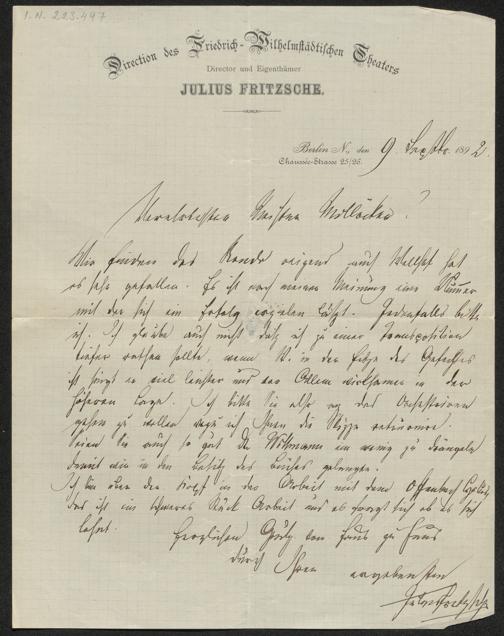 I.N. 223.497
Direction des Friedrich-Wilhelmstädtischen Theaters
Director und Eigenthümer
JULIUS FRITZSCHE.
Berlin N., den 9 Septbr. 1892.
Chaussée-Strasse 25/26.
Verehrtester Meister Millöcker!
Mir finden das Rondo reizend auch hat
es sehr gefallen. Es ist nach meiner Meinung eine Nummer
mit der sich ein Erfolg erzielen läßt. Jedenfalls bitte
ich. Ich glaube auch nicht daß ich zu einer Transposition
tiefer rathen sollte, wenn St. in der Hitze des Gefechtes
ist singt es viel leichter und vor Allem wirksamer in der
höheren Lage. Ich bitte Sie also an das Orchestriren
gehen zu wollen wozu ich Ihnen die Skizze retournire.
Seien Sie auch so gut Dr Wittmann ein wenig zu drängeln
damit wir in den Besitz des Buches gelangen.
Ich bin über den Kopf in der Arbeit mit dem Offenbach
das ist ein schweres Stück Arbeit und es fragt sich ob es sich
lohnt. Herzlichen Gruß von Haus zu Haus
durch Ihren ergebensten
Julius Fritzsche